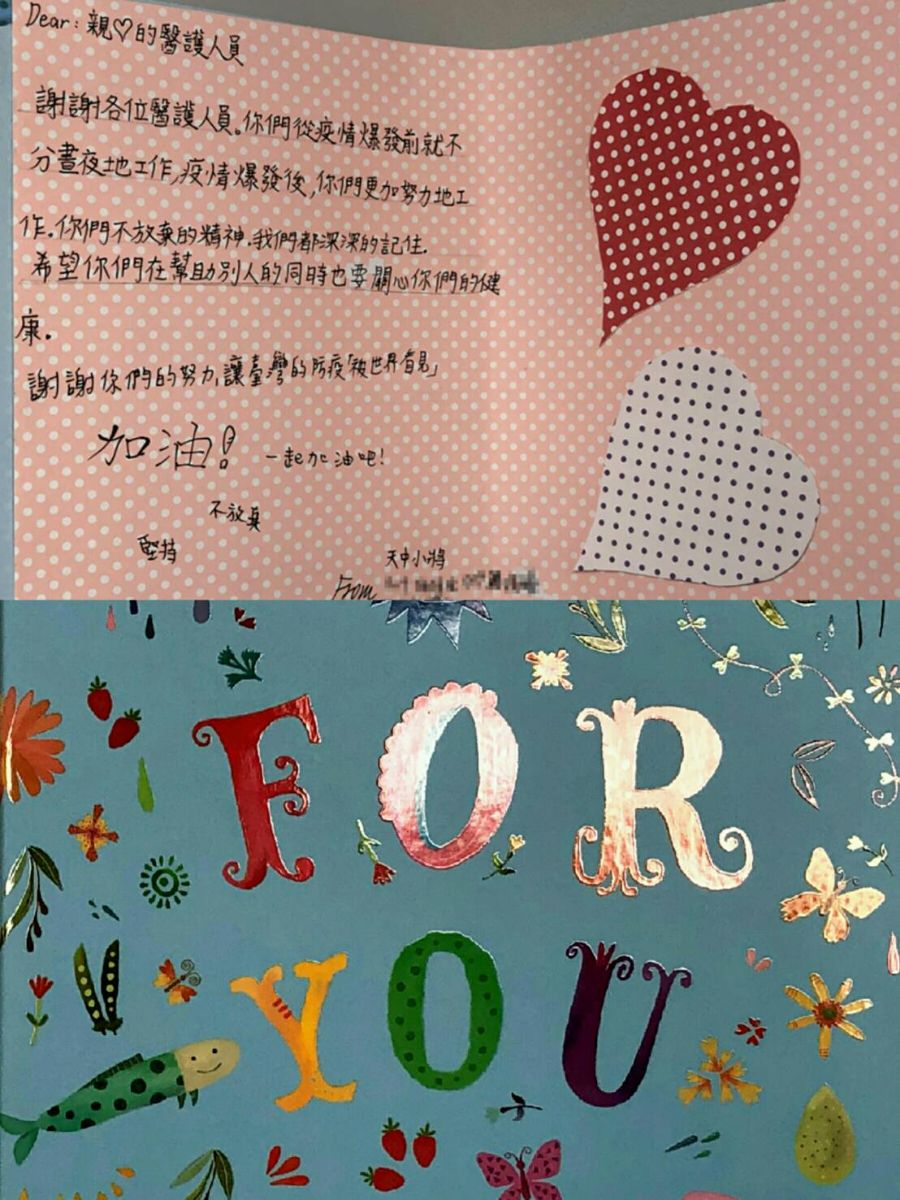 Dear：親♡的醫護人員
謝謝各位醫護人員。你們從疫情爆發前就不
分晝夜地工作,疫情爆發後,你們更加努力地工
作.你們不放棄的精神.我們都深深的記住.
希望你們在幫助別人的同時也要關心你們的健
康.
謝謝你們的努力,讓臺灣的防疫「被世界看見」
加油! 一起加油吧!
不放棄
堅持
天中小將
From
FOR
YOU